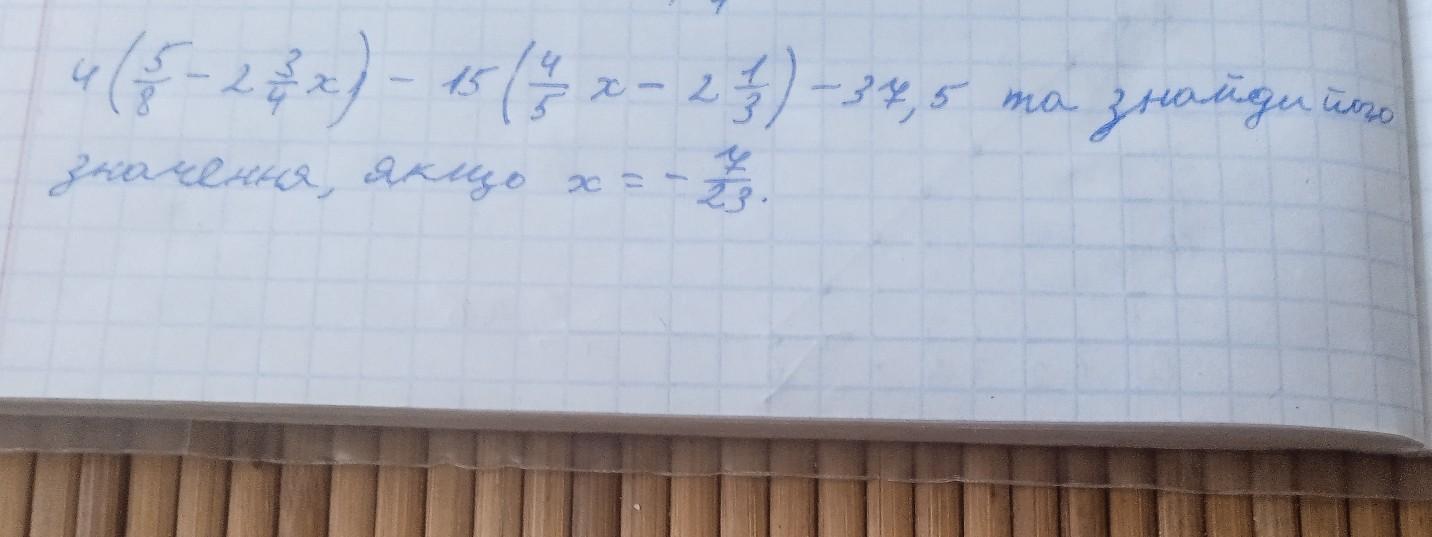 4(5/8 - 2 3/4 x) - 15(4/5 x - 2 1/3) - 37,5 та знайди його
значення, якщо x = - 7/23.